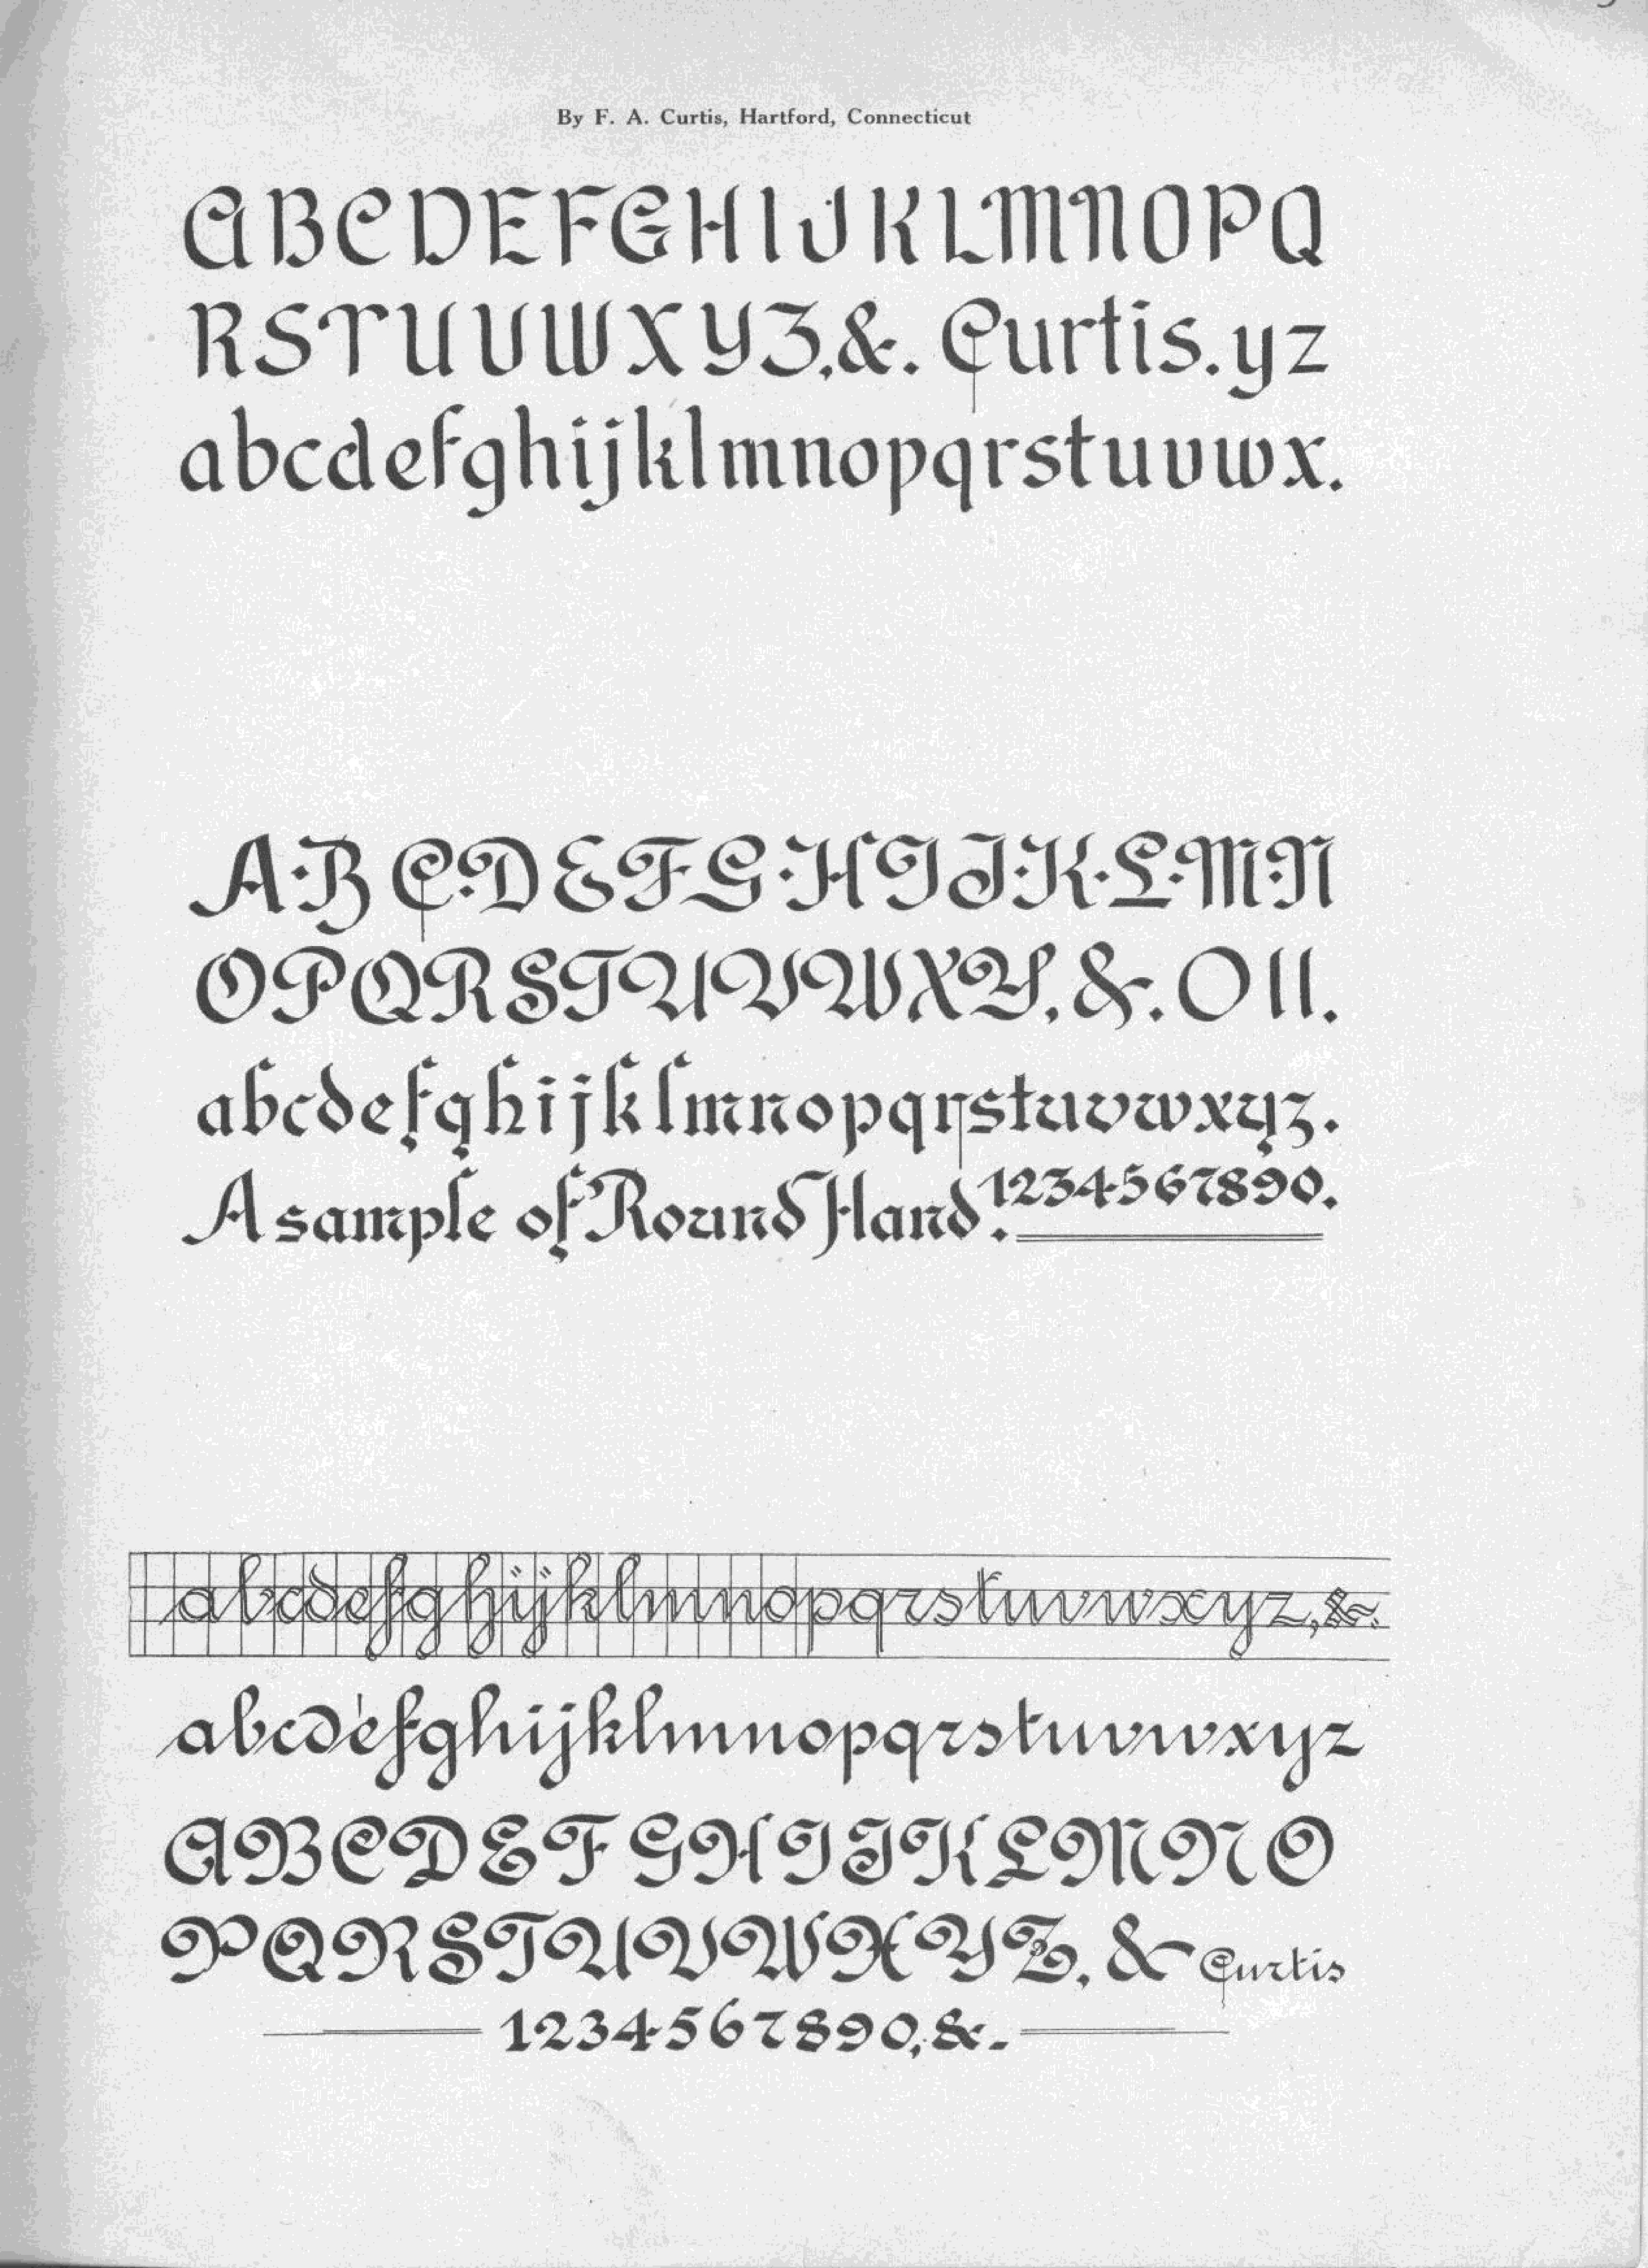 By F. A. Curtis, Hartford, Connecticut
A B C D E F G H I J K L M N O P Q
R S T U V W X Y Z , & . Curtis. y z
a b c d e f g h i j k l m n o p q r s t u v w x .
A B C D E F G H I J K L M N
O P Q R S T U V W X Y , & . O I I .
a b c d e f g h i j k l m n o p q r s t u v w x y z .
A sample of Round Hand . 1234567890.
a b c d e f g h i j k l m n o p q r s t u v w x y z , & .
a b c d e f g h i j k l m n o p q r s t u v w x y z
A B C D E F G H I J K L M N O
P Q R S T U V W X Y Z , & Curtis
1 2 3 4 5 6 7 8 9 0 , & .